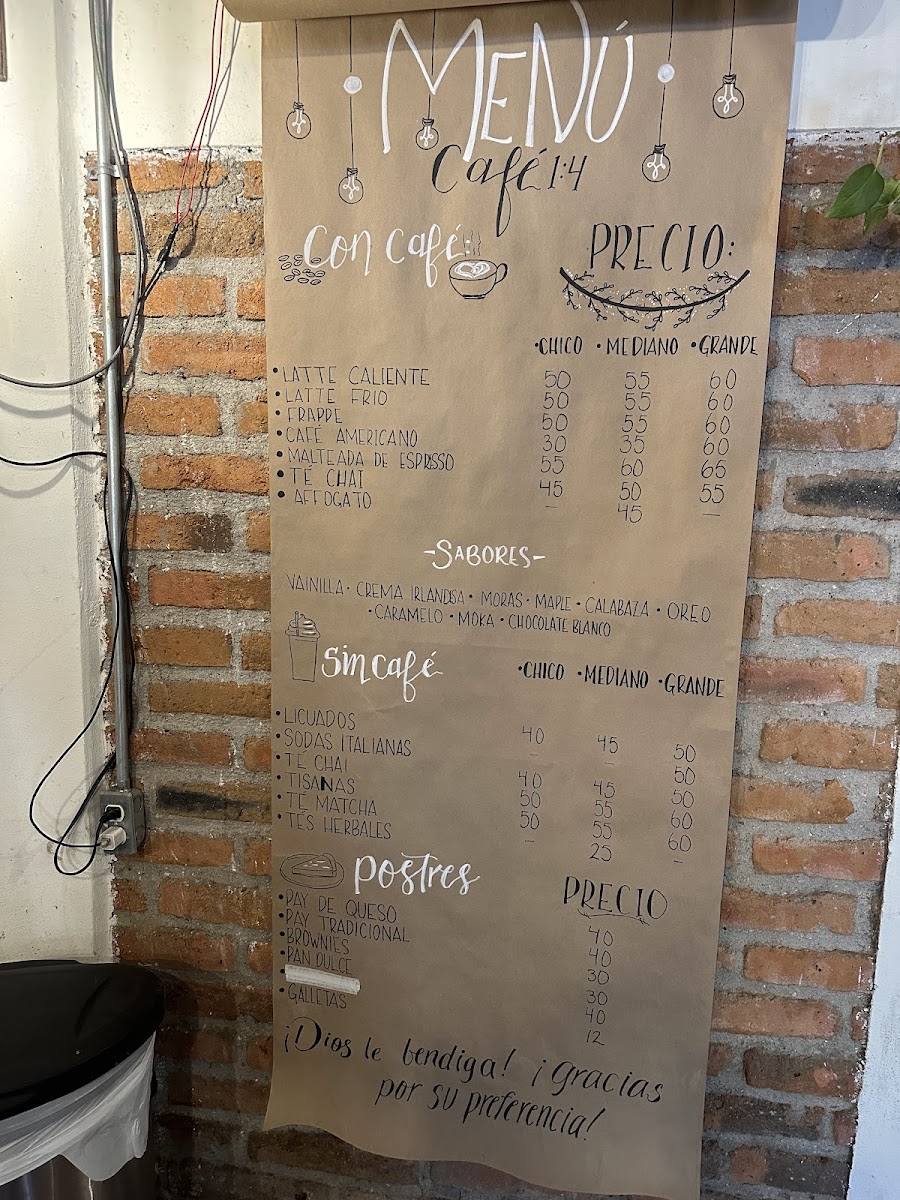 MENÚ
Café 1:4
Con café:
PRECIO:
•CHICO •MEDIANO •GRANDE
•LATTE CALIENTE 50 55 60
•LATTE FRIO 50 55 60
•FRAPPE 50 55 60
•CAFÉ AMERICANO 30 35 60
•MALTEADA DE ESPRESSO 55 60 65
•TÉ CHAI 45 50 55
•AFFOGATO – 45 –
-SABORES-
VAINILLA• CREMA IRLANDSA• MORAS• MAPLE• CALABAZA • OREO
•CARAMELO •MOKA •CHOCOLATE BLANCO
Sin café •CHICO •MEDIANO •GRANDE
•LICUADOS 40 45 50
•SODAS ITALIANAS – – 50
•TÉ CHAI 40 45 50
•TISANAS 50 55 60
•TÉ MATCHA 50 55 60
•TÉS HERBALES – 25 –
Postres PRECIO
•PAY DE QUESO 40
•PAY TRADICIONAL 40
•BROWNIES 30
•PAN DULCE 30
• 40
•GALLETAS 12
¡Dios le bendiga! ¡gracias
por su preferencia!